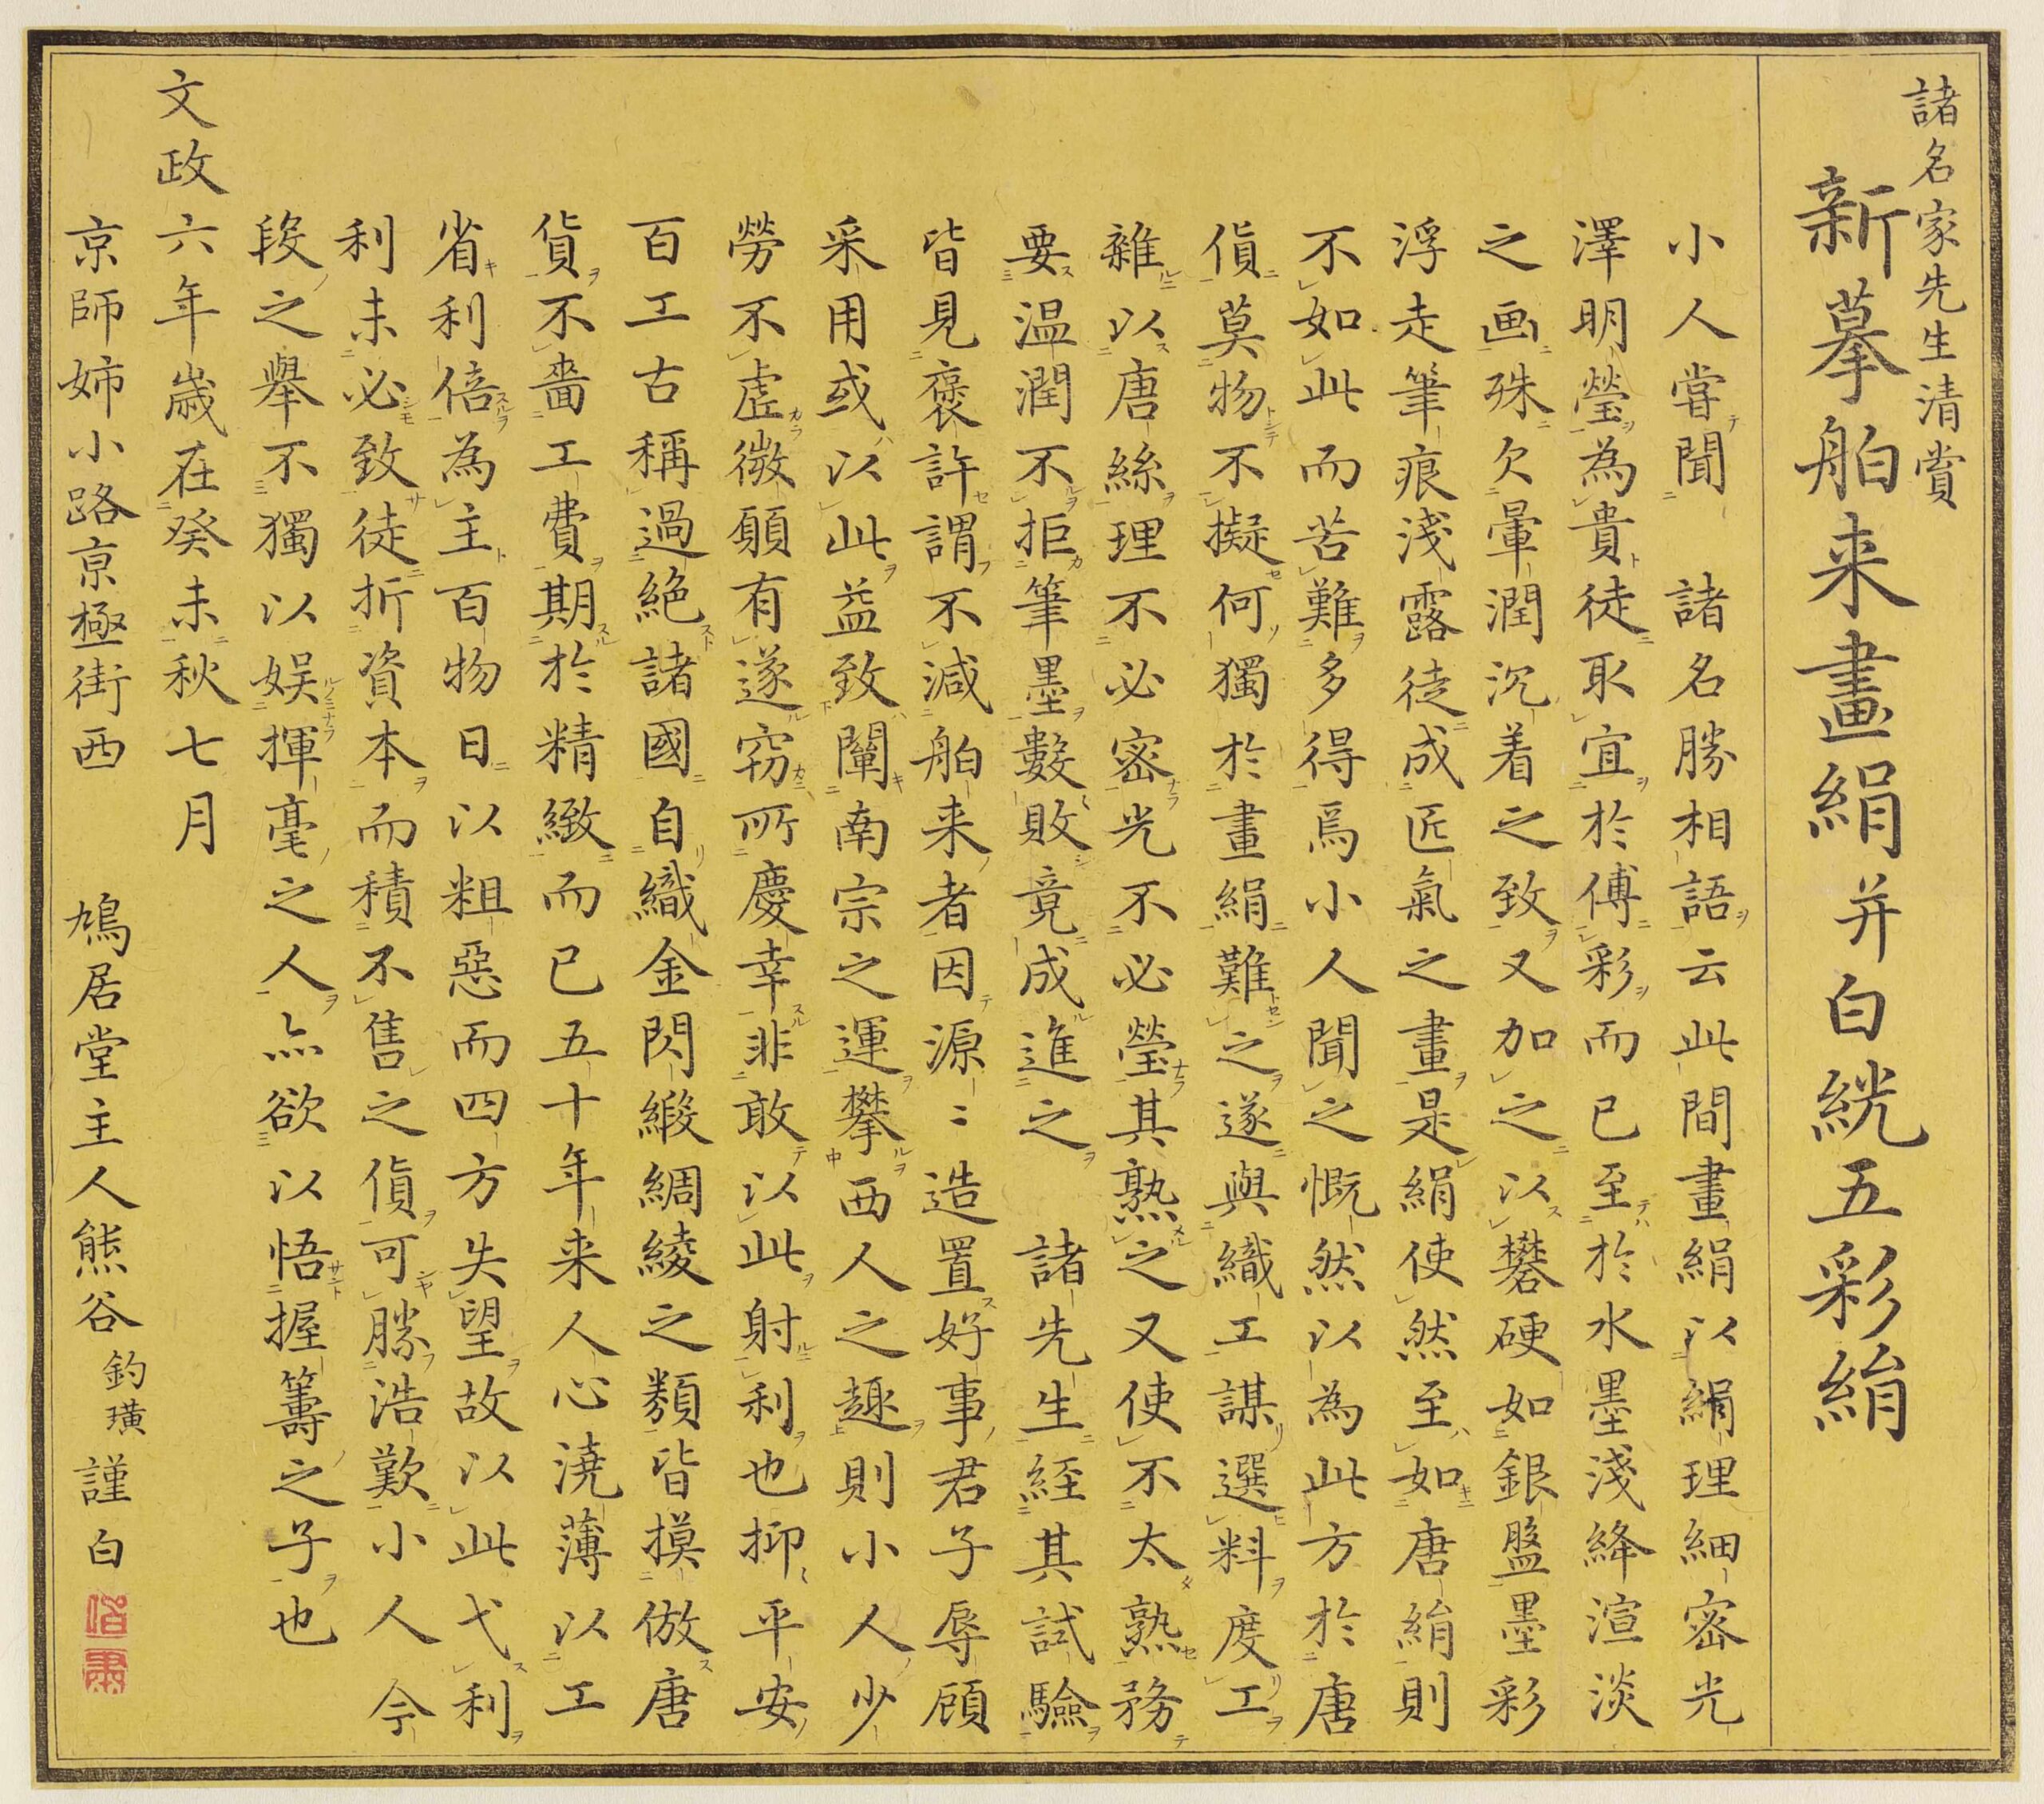 諸名家先生清賞
新摹舶来畫絹并白絖五彩絹
小人嘗聞　諸名勝相語云此間畫絹以絹理細密光
澤明瑩為貴徒取宜於傅彩而已至於水墨淺絳渲淡
之画殊欠暈潤沉着之致又加之以礬硬如銀盤墨彩
浮走筆痕淺露徒成匠氣之畫是絹使然至如唐絹則
不如此而苦難多得焉小人聞之慨然以為此方於唐
貨莫物不擬何獨於畫絹難之遂與織工謀選料度工
雜以唐絲理不必密光不必瑩其熟之又使不太熟務
要温潤不拒筆墨數敗竟成進之　諸先生経其試驗
皆見褒許謂不減舶来者因源〻造置好事君子辱顧
采用或以此益致闡南宗之運攀西人之趣則小人少
勞不虚微願有遂窃所慶幸非敢以此射利也抑平安
百工古稱過絶諸國自織金閃緞綢綾之類皆摸倣唐
貨不嗇工費期於精緻而已五十年来人心澆薄以工
省利倍為主百物日以粗惡而四方失望故以此弋利
利未必致徒折資本而積不售之貨可勝浩歎小人今
段之舉不獨以娯揮毫之人亦欲以悟握籌之子也
文政六年歳在癸未秋七月
京師姉小路京極街西　鳩居堂主人熊谷釣璜謹白